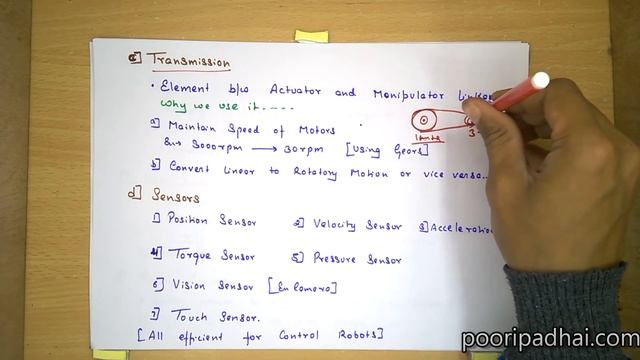 c] Transmission
• Element b/w Actuator and Manipulator Linkes
why we use it....
a] Maintain Speed of Motors
Ex→ 3000rpm → 30rpm [Using Gears]
b] Convert Linear to Rotatory Motion or vice versa..
d] Sensors
1] Position Sensor 2] Velocity Sensor 3] Acceleration
4] Torque Sensor 5] Pressure Sensor
6] Vision Sensor [Ex Camera]
7] Touch Sensor.
[All efficient for Control Robots]
pooripadhai.com